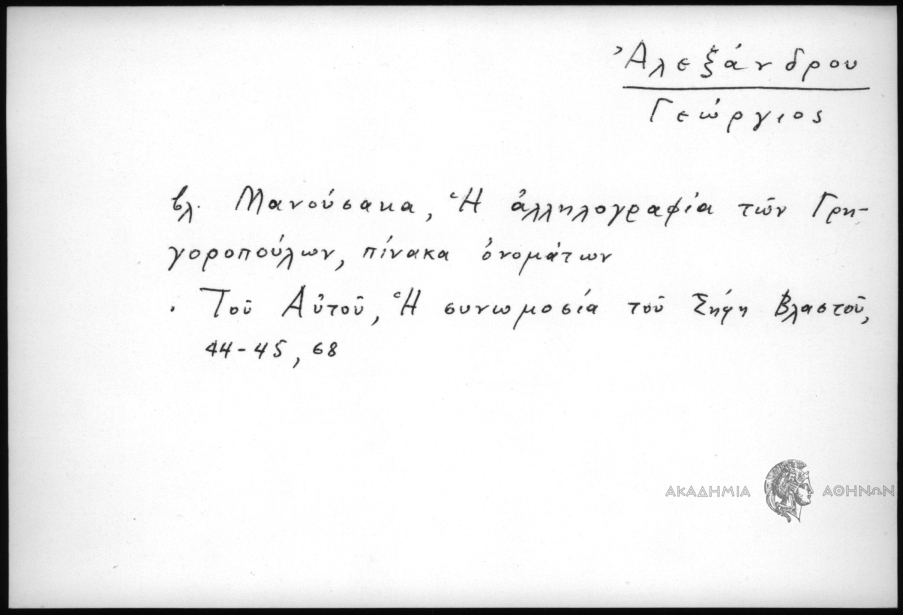 Ἀλεξάνδρου
Γεώργιος
βλ. Μανούσακα, Ἡ ἀλληλογραφία τῶν Γρη-
γοροπούλων, πίνακα ὀνομάτων
· Τοῦ Αὐτοῦ, Ἡ συνωμοσία τοῦ Σήφη Βλαστοῦ,
44-45, 68
ΑΚΑΔΗΜΙΑ ΑΘΗΝΩΝ